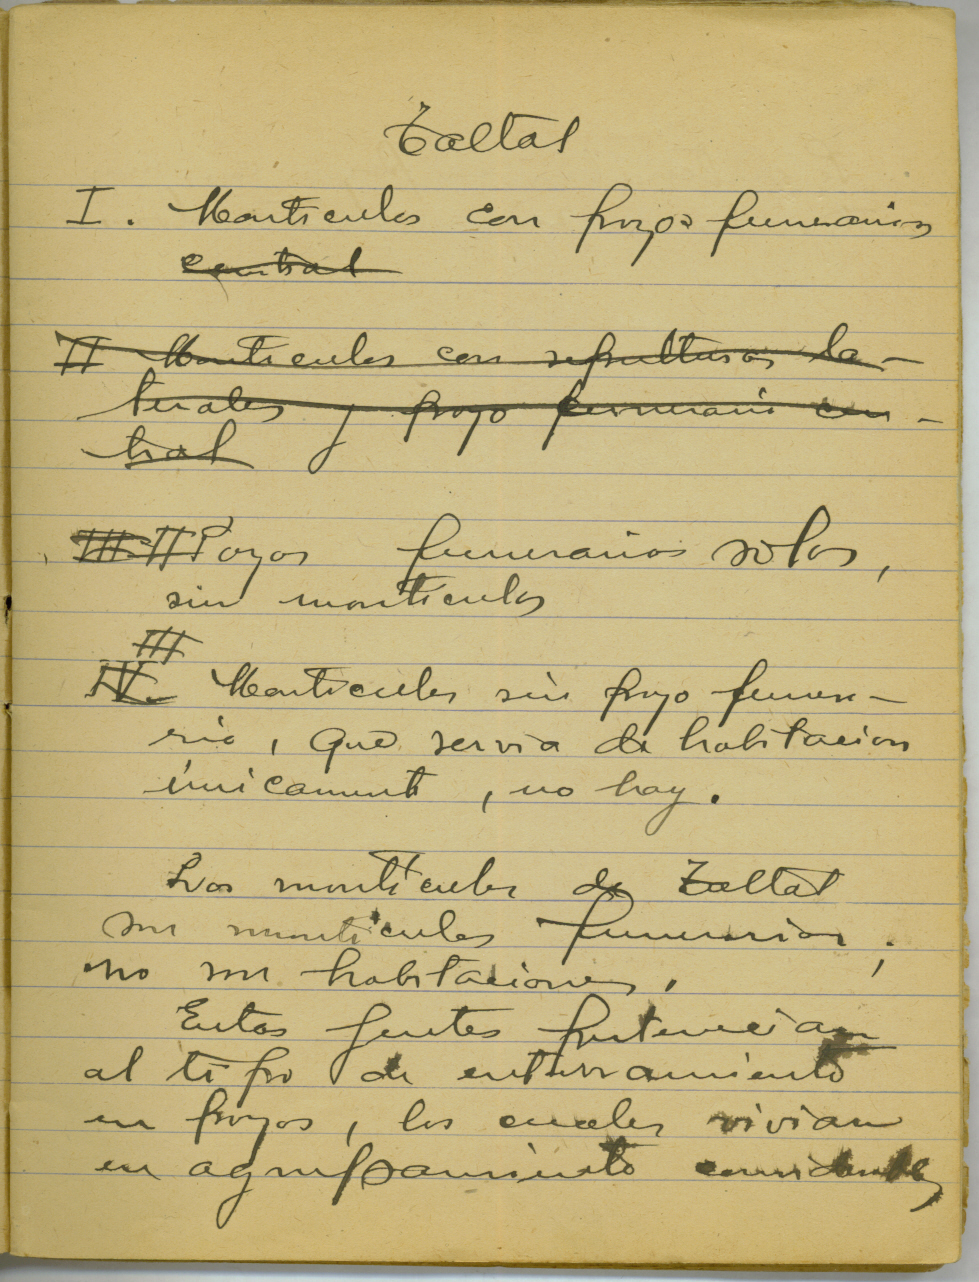 Taltal
I. Montículos con poyos funerarios
central
II Montículos con sepulturas la-
terales y poyo funerario cen-
tral
III. II Poyos funerarios solos,
sin montículos
III
IV. Montículos sin poyo funera-
rio, que servia de habitacion
únicamente, no hay.
Los montículos de Taltal
son montículos funerarios;
no son habitaciones.
Estas gentes pertenecian
al tipo de enterramiento
en poyos, los cuales vivian
en agrupamiento considerables